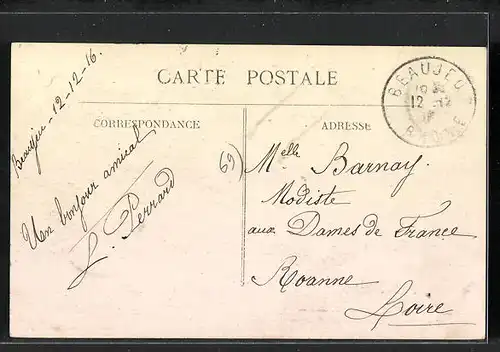 CARTE POSTALE
CORRESPONDANCE
ADRESSE
Beaujeu - 12-12-16.
Un bonjour amical
L. Perrard
BEAUJEU
12 - 12
RHONE
69)
Melle Barnay
Modiste
aux Dames de France
Roanne
Loire